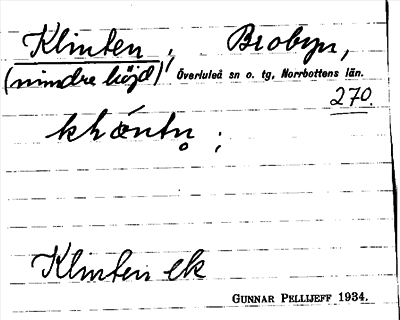 Klinten ; Brobyn,
(mindre höjd) Överluleå sn o. tg, Norrbottens län.
270.
;
Klinten ek
GUNNAR PELLIJEFF 1934.